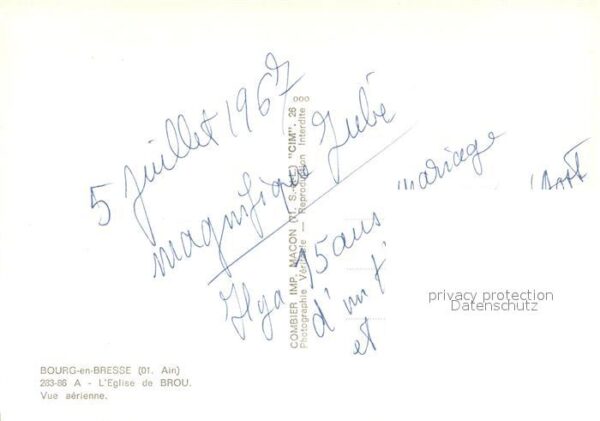 5 juillet 1967
magnifique Jubé
mariage
Il y a 75 ans
d'
et
COMBIER IMP. MACON (71. S.-&-L.) "CIM". 26
Photographie Véritable — Reproduction Interdite
privacy protection
Datenschutz
BOURG-en-BRESSE (01. Ain)
283-86 A - L'Eglise de BROU.
Vue aérienne.